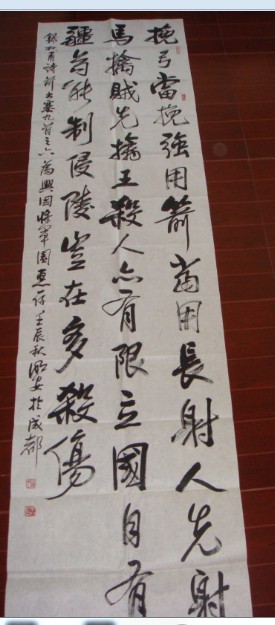 挽弓當挽強用箭當用長射人先射
馬擒賊先擒王殺人亦有限立國自有
疆苟能制侵陵豈在多殺傷
詩前出塞九首之六為興國將軍 壬辰秋 於成都